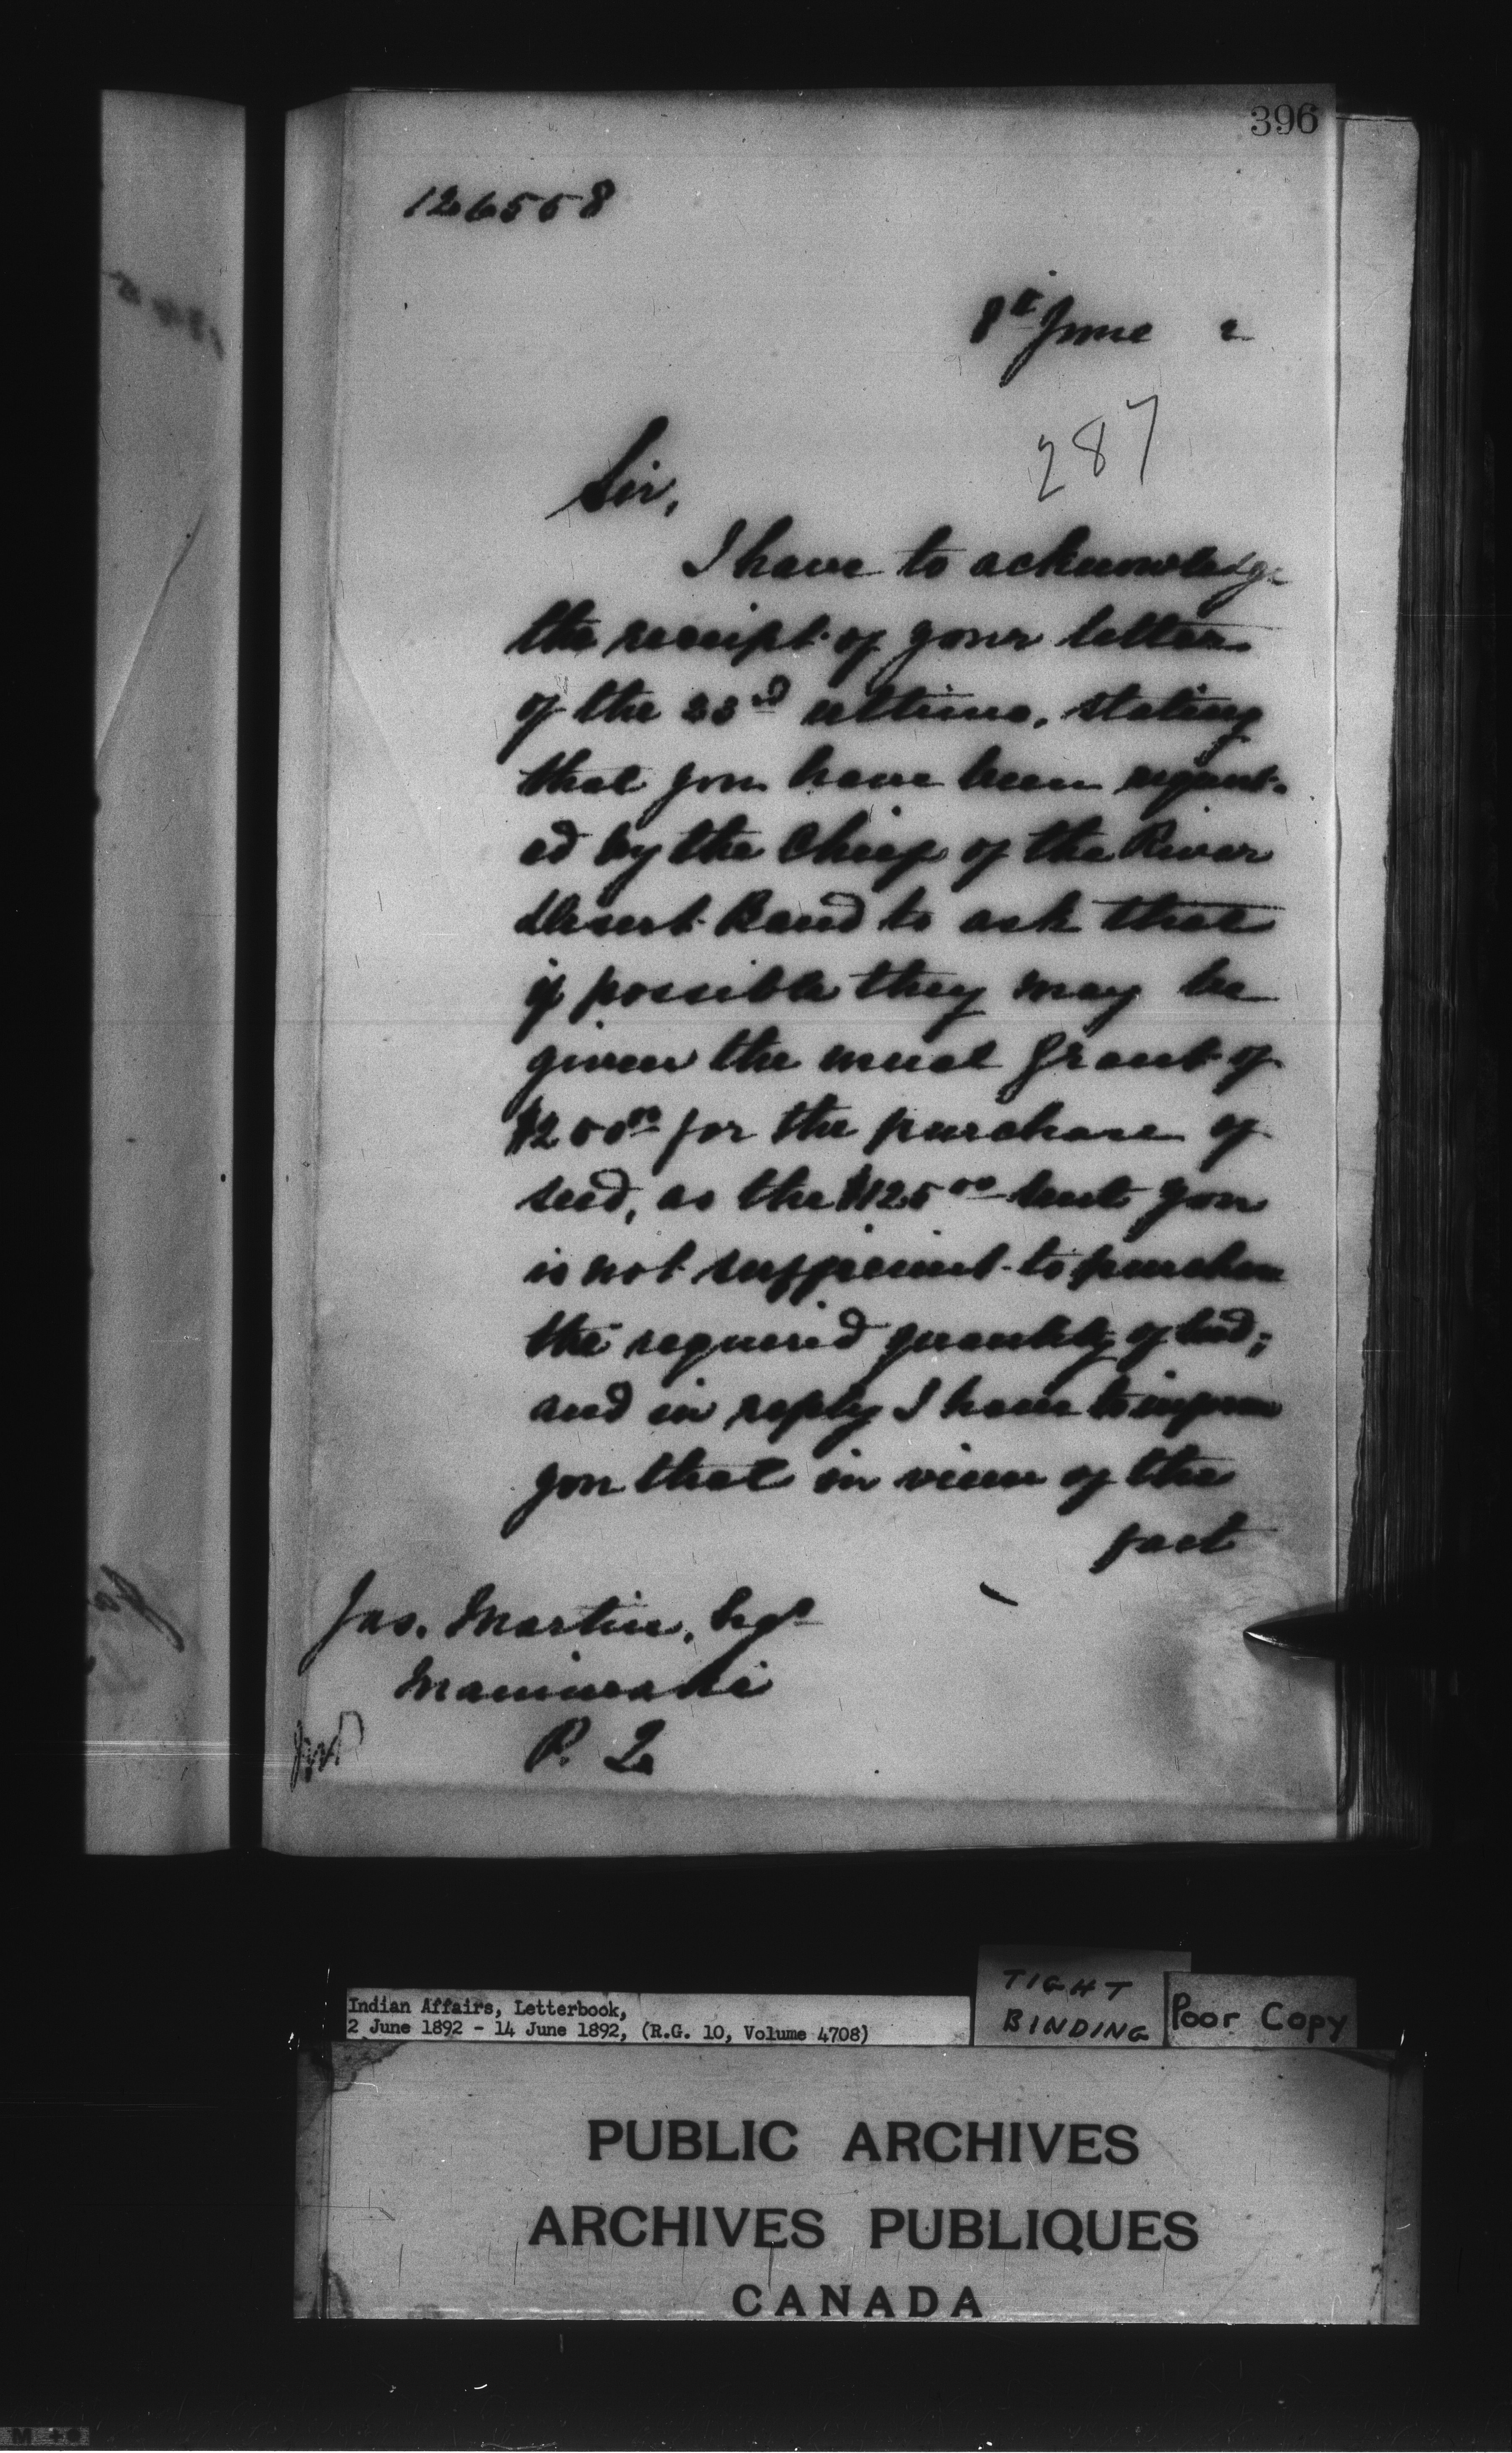 396
126558
8th June 2
287
Sir,
I have to acknowledge
the receipt of your letter
of the 23rd ultimo, stating
that you have been request-
ed by the Chief of the River
Desert Band to ask that
if possible they may be
given the usual grant of
$200 00 for the purchase of
seed, as the $125 00 sent you
is not sufficient to purchase
the required quantity of seed;
and in reply I have to inform
you that in view of the
fact
Jas. Martin, Esqr
Maniwaki
P. Q
Indian Affairs, Letterbook,
2 June 1892 - 14 June 1892, (R.G. 10, Volume 4708)
TIGHT
BINDING
Poor Copy
PUBLIC ARCHIVES
ARCHIVES PUBLIQUES
CANADA